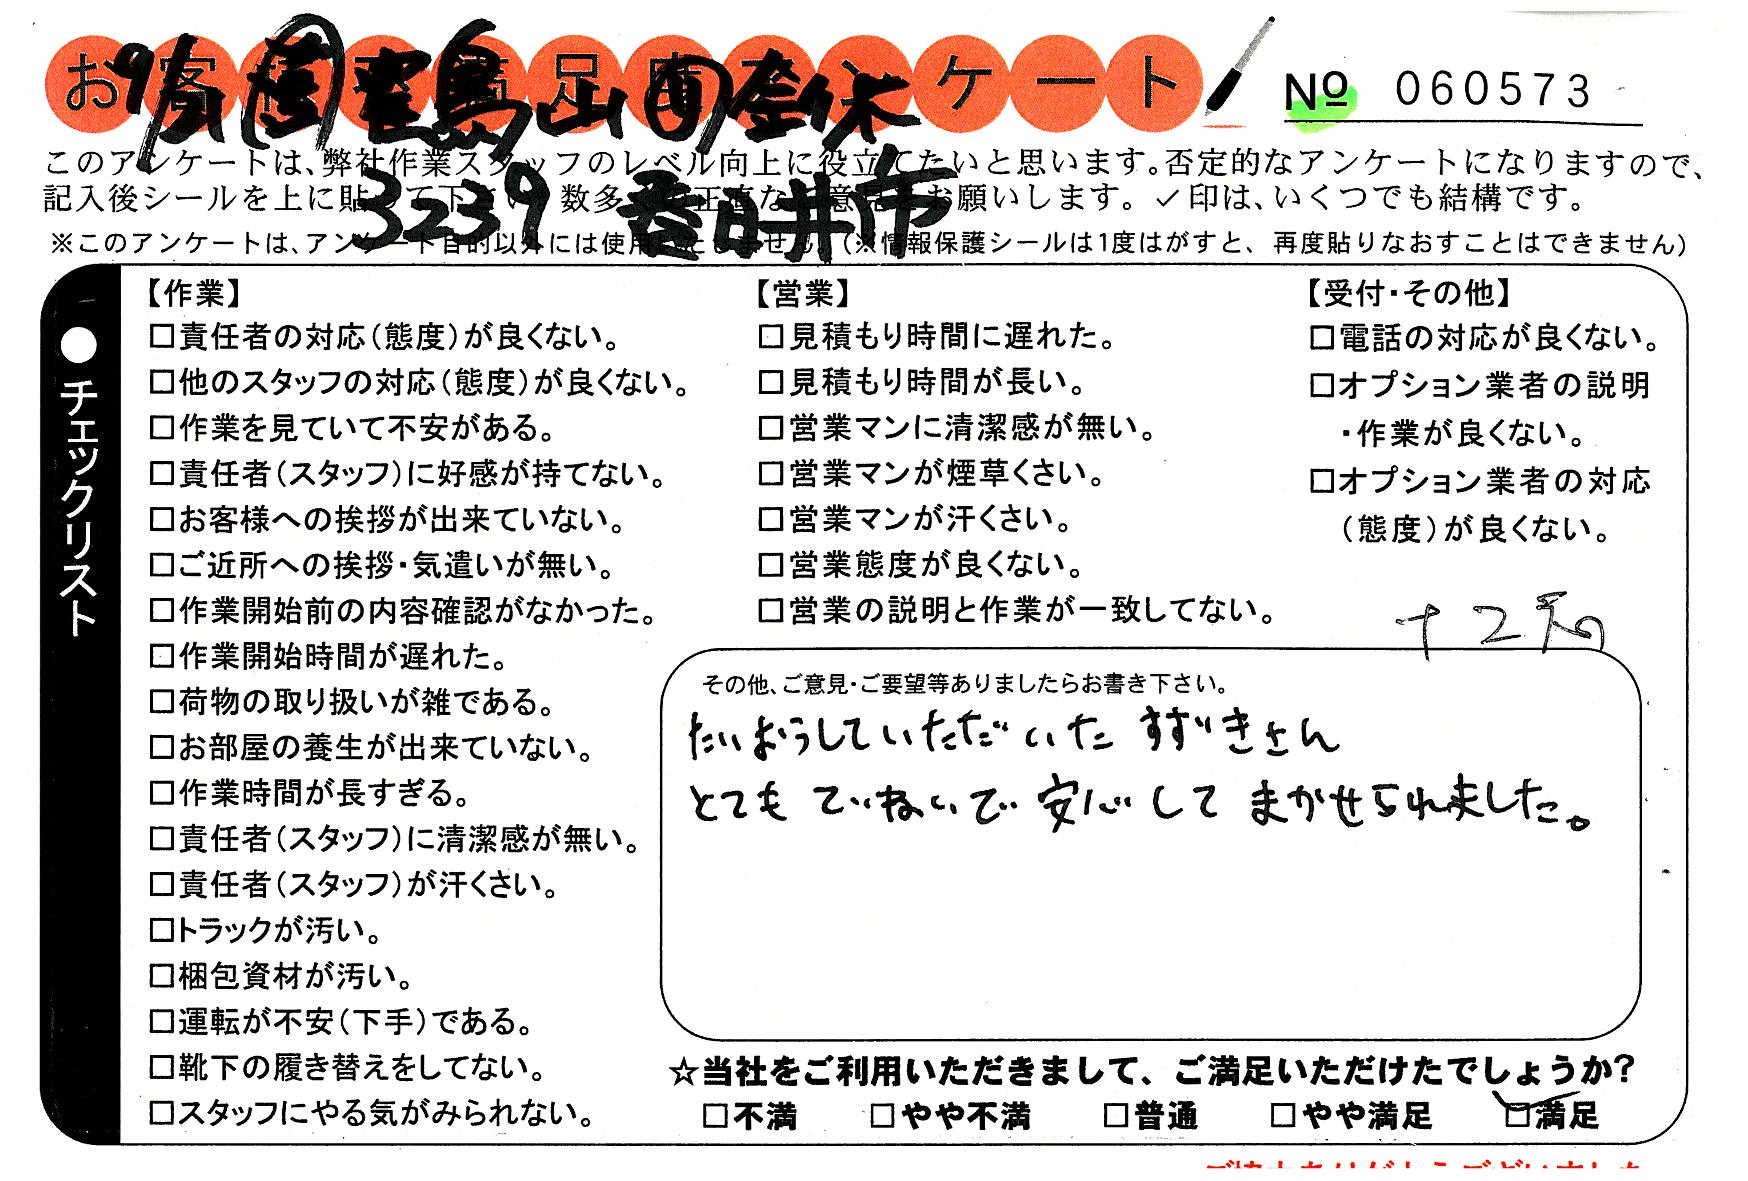 お客様満足度アンケート
No 060573
3239 春日井市
このアンケートは、弊社作業スタッフのレベル向上に役立てたいと思います。否定的なアンケートになりますので、
記入後シールを上に貼って下さい。数多くの正直なご意見をお願いします。✓印は、いくつでも結構です。
※このアンケートは、アンケート目的以外には使用いたしません。(※情報保護シールは1度はがすと、再度貼りなおすことはできません)
●チェックリスト
【作業】
□責任者の対応(態度)が良くない。
□他のスタッフの対応(態度)が良くない。
□作業を見ていて不安がある。
□責任者(スタッフ)に好感が持てない。
□お客様への挨拶が出来ていない。
□ご近所への挨拶・気遣いが無い。
□作業開始前の内容確認がなかった。
□作業開始時間が遅れた。
□荷物の取り扱いが雑である。
□お部屋の養生が出来ていない。
□作業時間が長すぎる。
□責任者(スタッフ)に清潔感が無い。
□責任者(スタッフ)が汗くさい。
□トラックが汚い。
□梱包資材が汚い。
□運転が不安(下手)である。
□靴下の履き替えをしてない。
□スタッフにやる気がみられない。
【営業】
□見積もり時間に遅れた。
□見積もり時間が長い。
□営業マンに清潔感が無い。
□営業マンが煙草くさい。
□営業マンが汗くさい。
□営業態度が良くない。
□営業の説明と作業が一致してない。
【受付・その他】
□電話の対応が良くない。
□オプション業者の説明
・作業が良くない。
□オプション業者の対応
(態度)が良くない。
その他、ご意見・ご要望等ありましたらお書き下さい。
たいおうしていただいた すずきさん
とても ていねいで 安心して まかせられました。
☆当社をご利用いただきまして、ご満足いただけたでしょうか?
□不満 □やや不満 □普通 □やや満足 □満足
ご協力ありがとうございました